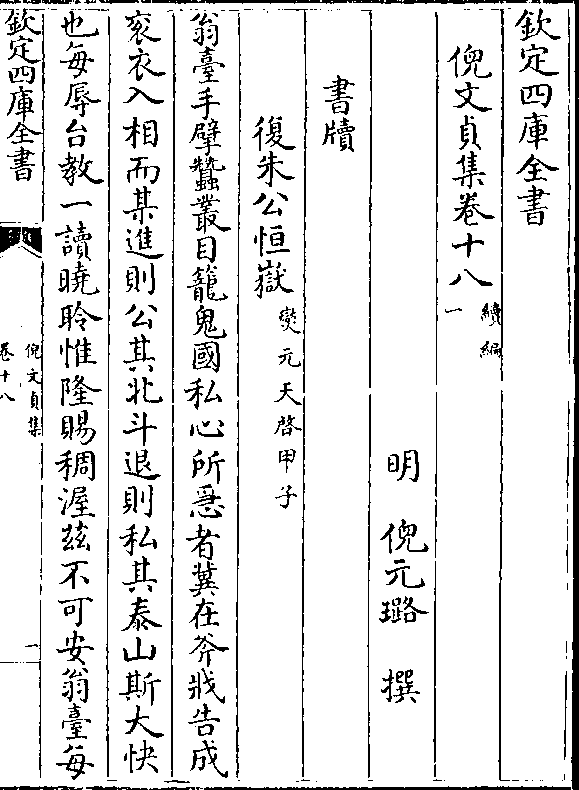 欽定四庫全書
倪文貞集卷十八
續編一
明 倪元璐 撰
書牘
復朱公恒嶽
燮元天啓甲子
翁臺手擘蠶叢目籠鬼國私心所惡者冀在斧戕告成
衮衣入相而某進則公其北斗退則私其泰山斯大快
也每辱台教一讀曉聆惟隆賜稠渥茲不可安翁臺每
欽定四庫全書
倪文貞集
卷十八
一